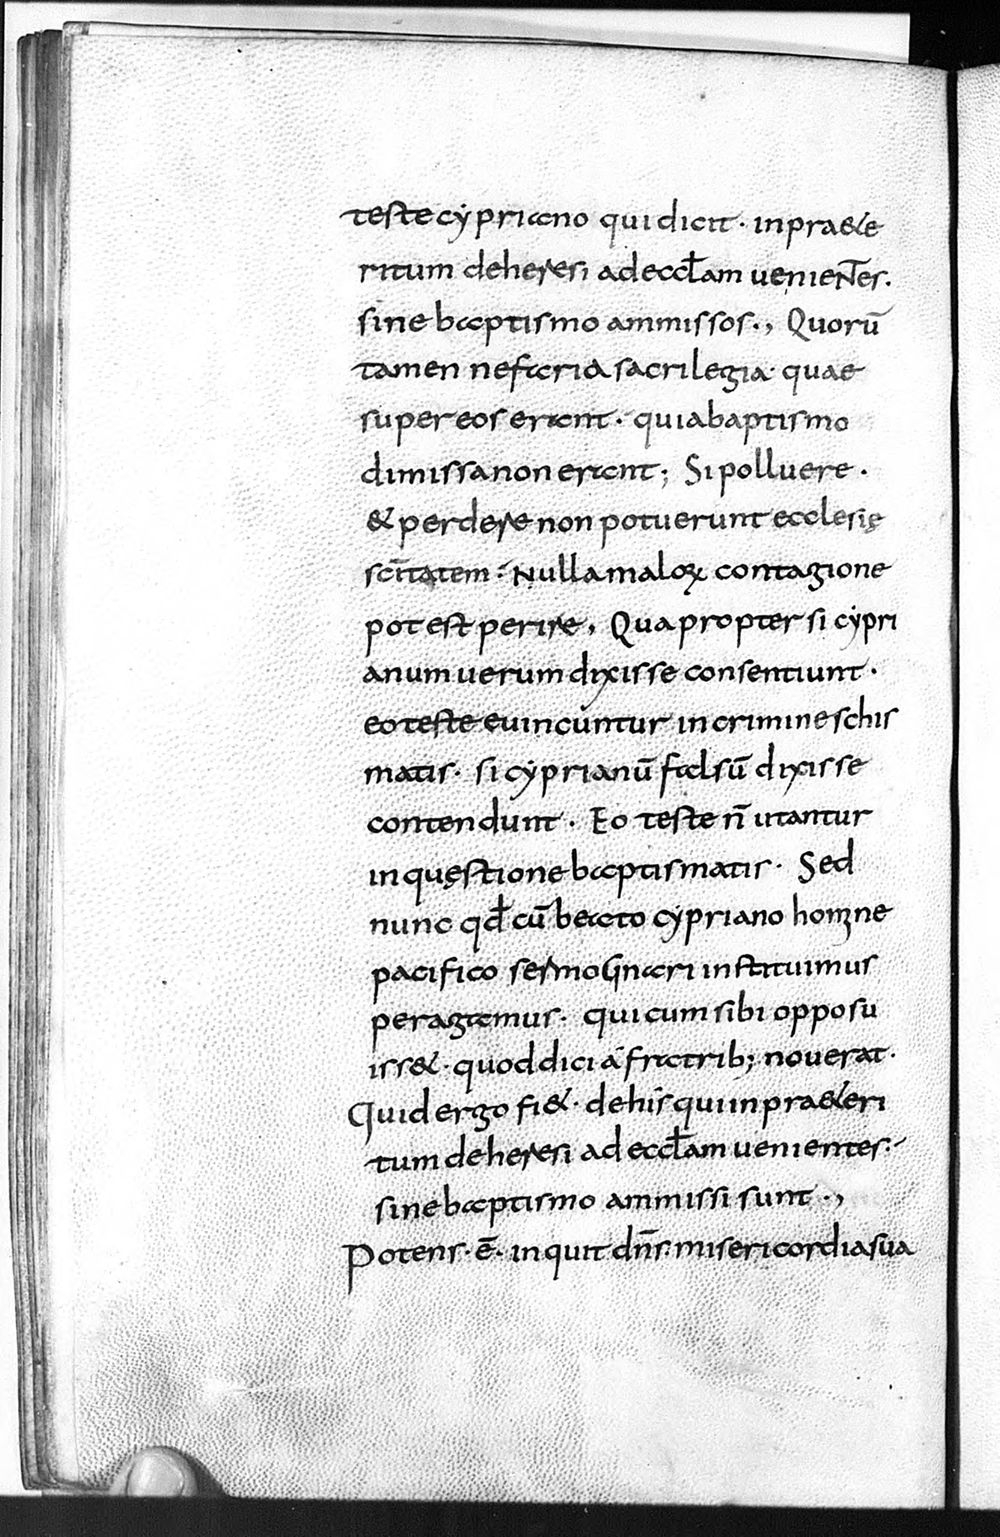 teste cypriano qui dicit · in prae&e
ritum de heresi ad eccłam uenientes.
sine baptismo ammissos ., Quorū
tamen nefaria sacrilegia · quae
super eos erant · quia baptismo
dimissa non erant ; Si polluere ·
& perdere non potuerunt ecclesię
scītatem · Nulla maloꝝ contagione
potest perire , Quapropter si cypri
anum uerum dixisse consentiunt ·
eo teste euincuntur in crimine schis
matis · si cyprianū falsū dixisse
contendunt · Eo teste ñ utantur
in quęstione baptismatis · Sed
nunc qđ cū beato cypriano homine
pacifico sermocinari instituimus
peragamus · qui cum sibi opposu
iss& · quod dici a fratrib; nouerat ·
Quid ergo fi& · de his qui in prae&eri
tum de heresi ad eccłam uenientes ·
sine baptismo ammissi sunt .,
Potens · ē · inquit dn̄s misericordia sua